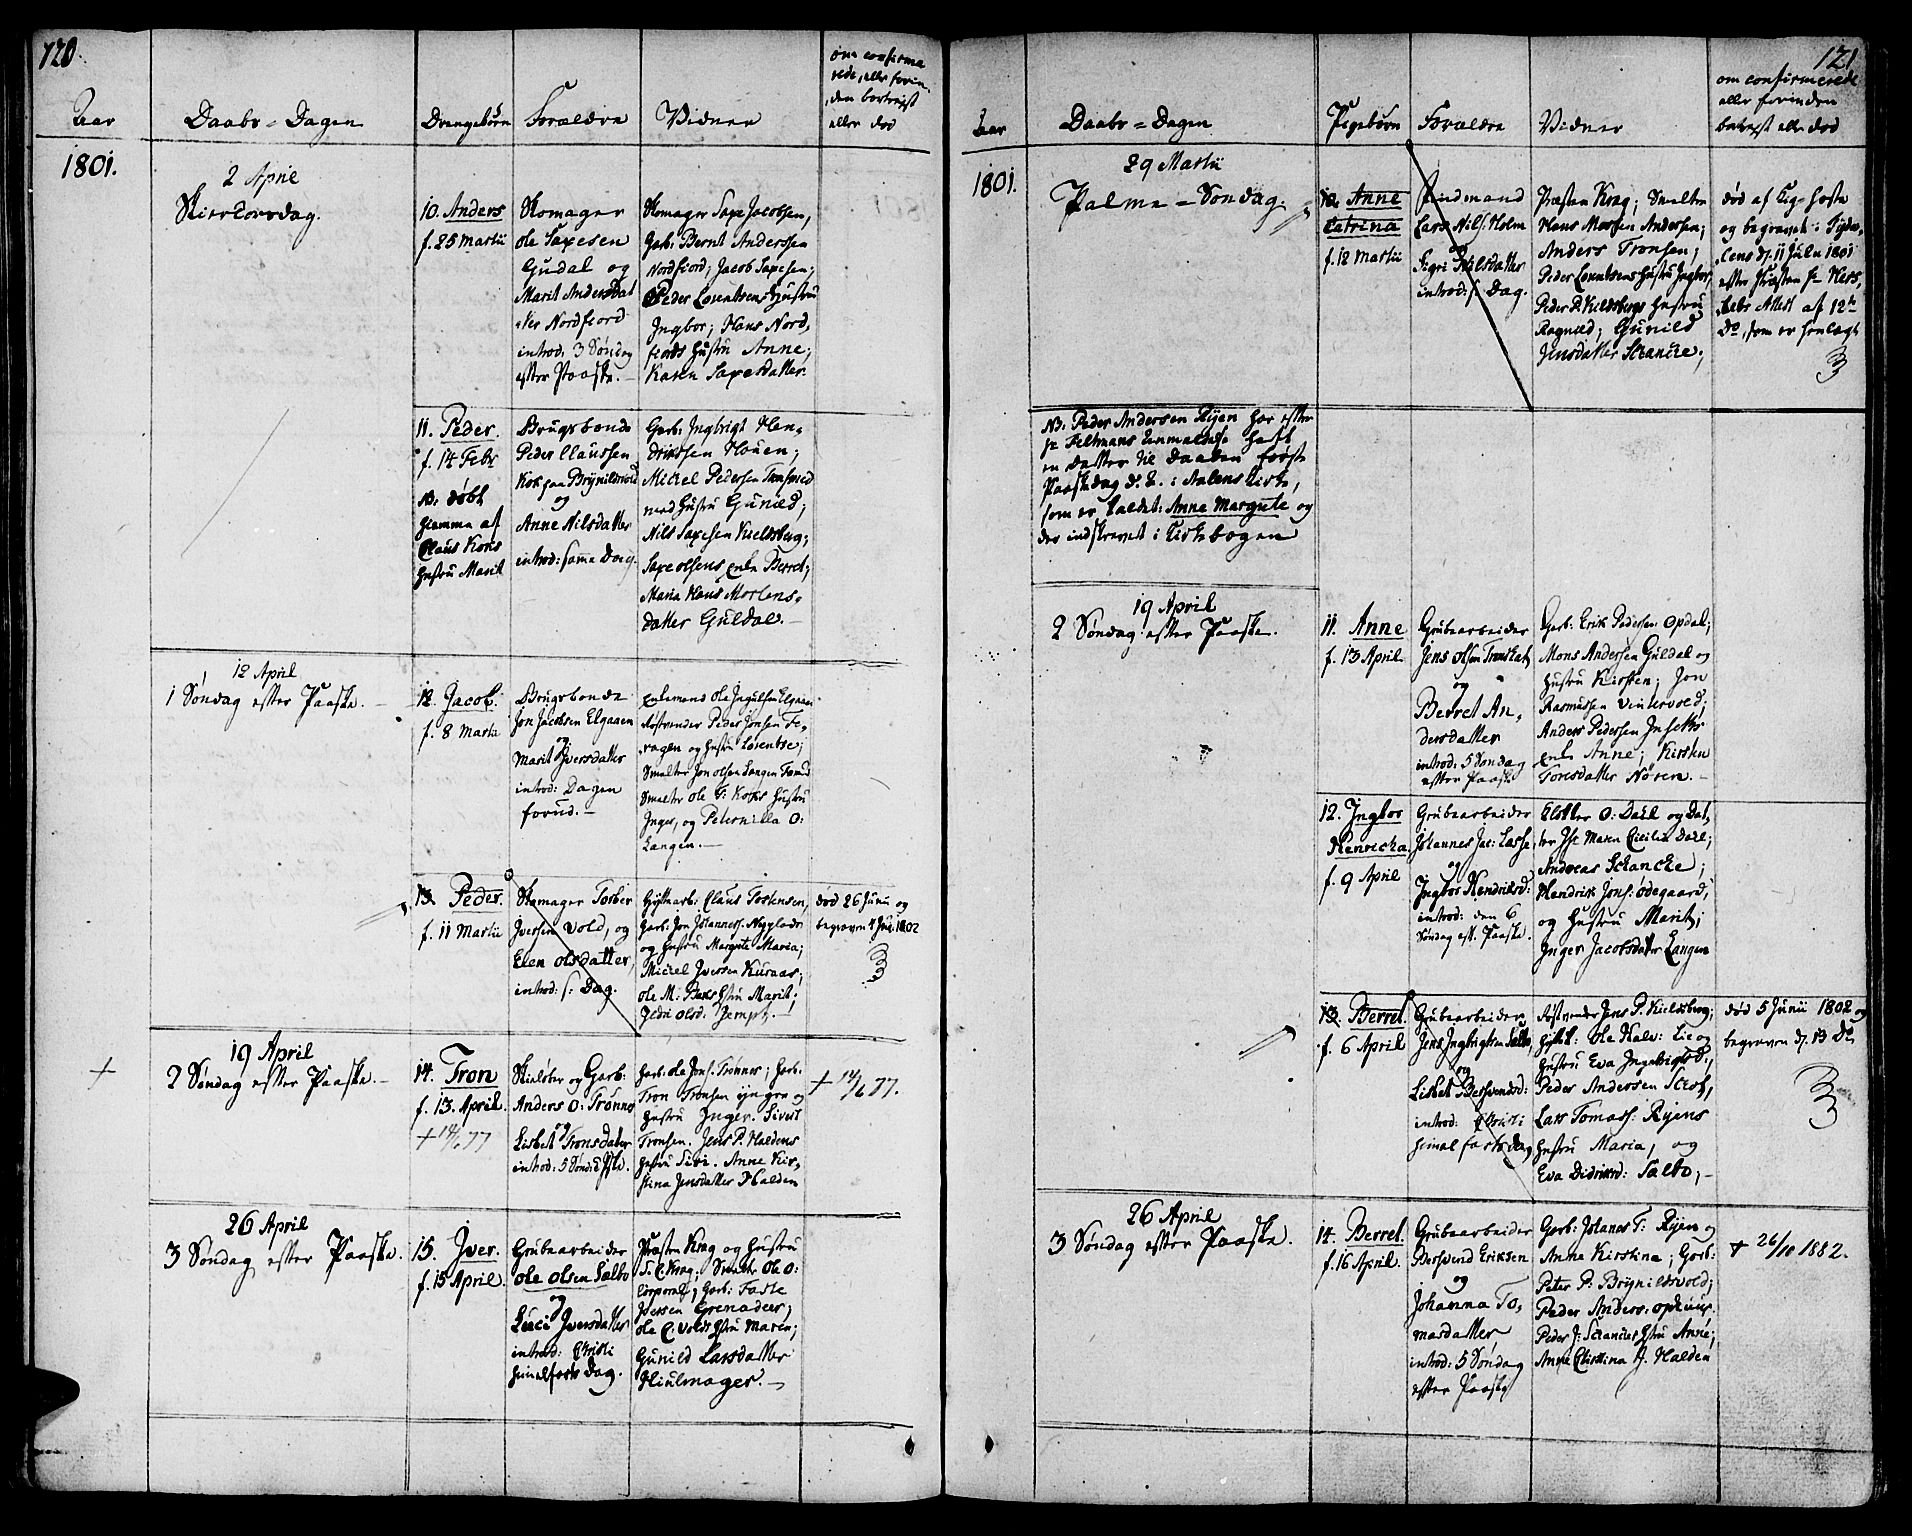 120.
Aar
Daabs-Dagen
Drengebörn
Forældre
Vidner
om confirme
rede, eller forin-
den bortreist
eller död
1801.
2 April
Skiertorsdag.
10. Anders
f. 25 Martii
Skomager
Ole Saxesen
Guldal og
Marit Andersdat
ter Nordfiord
introd: 3 Söndag
efter Paaske.
Skomager Saxe Jacobsen,
Garb: Bernt Anderssen
Nordfiord; Jacob Saxesen;
Peder Lorentsens Hustru
Ingbor; Hans Nord,
fiords Hustru Anne;
Karen Saxesdatter.
11. Peder.
f. 14 Febr
NB: döbt
hiemme af
Claus Koks
Hustru Marit
Brugsbonde
Peder Claussen
Kok paa Brynildsvold
og
Anne Nilsdatter
introd: samme Dag.
Garb: Ingbrigt Hen-
drikssen Houen;
Michel Pedersen
med Hustru Gunild;
Nils Saxesen Kieldsberg;
Saxe Olsens Enke Berret;
Maria Hans Mortens-
datter Guldal.
12 April
1 Söndag efter Paaske.
12. Jacob.
f. 8 Martii
Brugsbonde
Jon Jacobsen Elgaaen
og
Marit Iversdatter
introd: Dagen
forud.
Enkemand Ole Ingulsen Elgaaen
Röstvender Peder Jonsen Fe-
ragen og Hustru Lorentse;
Smelter Jon Olsen Langen
Smelter Ole T: Koks Hustru
Inger, og Peternilla O:
Langen.
13. Peder.
f. 11 Martii
Skomager Torber
Iversen Vold, og
Elen Olsdatter,
introd: s: Dag.
Hyttearb: Claus Torstensen,
Garb: Jon Johanness: Nyplads
og Hustru Margrete Maria;
Michel Iversen Kuraas;
Ole M: Baks Hstru Marit;
Sedri Olsd: Jempt.
död 26 Junii og
begraven 4 Jul: 1802
3
19 April
2 Söndag efter Paaske.
14. Tron
f. 13. April
+ 14/6 77
Skielöber og Garb:
Anders O: Trönnes
og
Lisbet Tronsdatter
introd: 5 Sönd: E. Pske.
Garb: Ole Jons: Trönnes; Garb:
Tron Tronsen yngre og
Hustru Inger. Sivert
Tronsen. Jens P. Haldens
Hustru Siri. Anne Kir-
stina Jensdatter Halden
+ 14/6 77.
26 April
3 Söndag efter Paaske.
15. Iver.
f. 15 April.
Grubearbeider
Ole Olsen Sælbo
og
Luci Iversdatter
introd: Christi
himelfarts Dag.
Præsten Krag og Hustru
S. C. Krag; Smelter Ole O:
Corporal; Garb: Faste
Iversen Grenadeer;
Ole C: Volds Hstru Maren;
Gunild Larsdatter
Hiulmager.
121
Aar
Daabs-Dagen
Pigebörn
Forældre
Vidner
om confirmerede
eller forinden
bortreist eller död
1801.
29 Martii
Palme-Söndag.
10. Anne
Catrina
f. 12 Martii
Findmand
Lars Nils: Holm
og
Sigri Nilsdatter
introd: s: Dag.
Præsten Krag; Smelter
Hans Morten Andersen;
Anders Tronsen;
Peder Lorentsens Hustru Ingbor,
Peder P. Kieldsbergs Hustru
Ragnild; Gunild
Jensdatter Schancke.
död af Kig-hoste
og begravet i Tyda-
lens d. 11 Julii 1801
efter Præsten Hr Hers,
lebs Attest af 12te
Do, som er henlagt
3
NB. Peder Andersen Ryen har efter
Hr Feltmans Anmeldelse havt
en Datter til Daaben förste
Paaskedag d. A. i Aalens Kirke,
som er kaldet: Anne Margrete og
der indskrevet i Kirkebogen
19 April
2 Söndag efter Paaske.
11. Anne
f. 13 April.
Grubearbeider
Jens Olsen Tronskat
og
Berret An,
dersdatter
introd: 5 Söndag
efter Paaske
Garb: Erik Pedersen Opdal;
Mons Andersen Guldal og
Hustru Kirsten; Jon
Rasmussen Vintervold;
Anders Pedersen Insetts
Enke Anne; Kirsten
Toresdatter Nören.
12. Ingbor
Henricka.
f. 9 April
Grubearbeider
Johannes Jac: Lasse,
og
Ingbor Hendriksd:
introd: den 6
Söndag eft. Paaske.
Klokker O: Dahl og Dat,
ter Jfr Maren Cicilia Dahl;
Andreas Schancke;
Hendrik Jons: Ödegaard;
og Hustru Marit;
Inger Jacobsdatter Langen
13. Berret.
f. 6 April
Grubearbeider
Jens Ingbrigtsen Sælbo,
og
Lisbet Bersvendsd:
introd: Christi
himelfartsdag
Röstvender Jens P. Kieldsberg;
Hyttek: Ole Halv: Lie og
Hustru Eva Ingebrigtsd:,
Peder Andersen Skott,
Lars Tomass: Ryens
Hustru Maria, og
Eva Didriksd: Sælbo,
död 5 Junii 1802 og
begraven d. 13 Do,
3
26 April
3 Söndag efter Paaske.
14. Berret.
f. 16 April.
Grubearbeider
Bersvend Eriksen
og
Johanna To,
masdatter
introd: 5 Söndag
efter Paaske
Garb: Johanes T: Ryen og
Anne Kirstina; Garb:
Peter P: Brynildsvold;
Peder Anders: Opkuus.
Peder J: Schanckes Hstru Anne;
Anne Christina J. Halden
+ 26/10 1882.